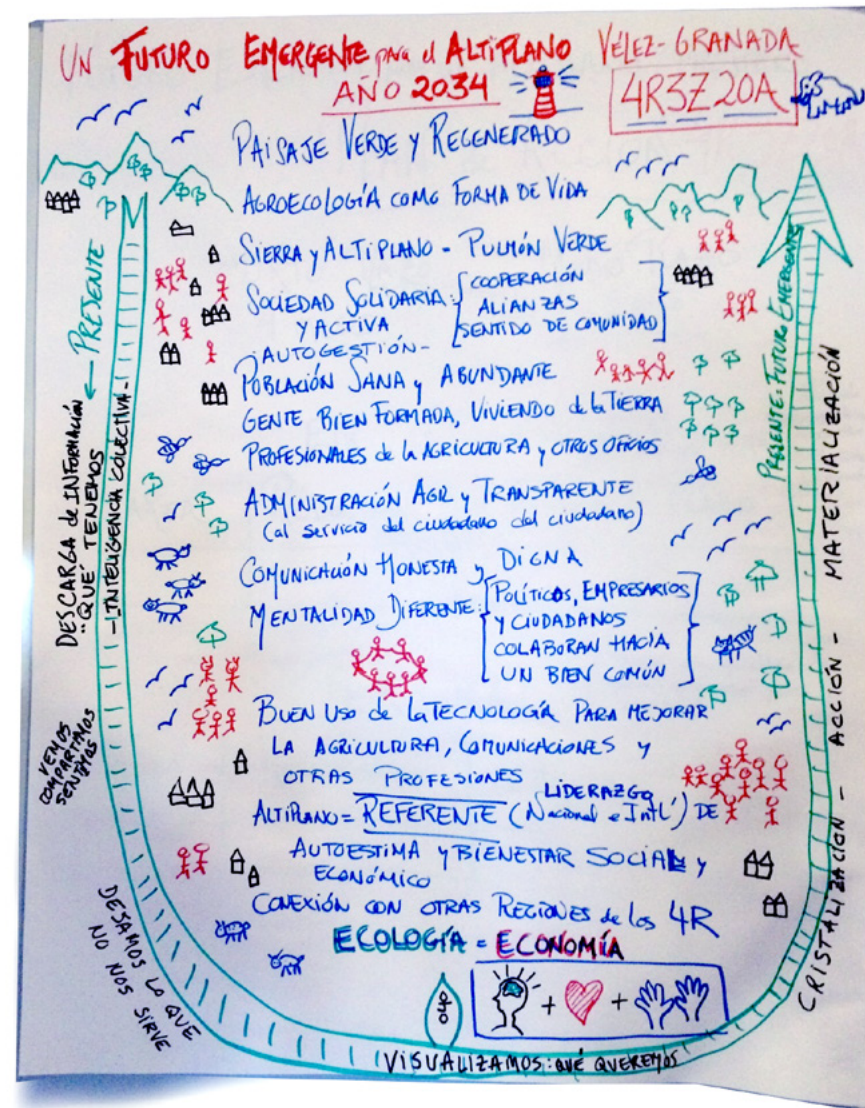 UN FUTURO EMERGENTE para el ALTIPLANO VÉLEZ-GRANADA
AÑO 2034
4R3Z20A
PAISAJE VERDE Y REGENERADO
AGROECOLOGÍA COMO FORMA DE VIDA
SIERRA y ALTIPLANO - PULMÓN VERDE
SOCIEDAD SOLIDARIA: COOPERACIÓN
Y ACTIVA ALIANZAS
SENTIDO DE COMUNIDAD
- AUTOGESTIÓN -
POBLACIÓN SANA y ABUNDANTE
GENTE BIEN FORMADA, VIVIENDO de la TIERRA
PROFESIONALES de la AGRICULTURA y OTROS OFICIOS
ADMINISTRACIÓN AGIL y TRANSPARENTE
(al servicio del ciudadano del ciudadano)
COMUNICACIÓN HONESTA y DIGNA
MENTALIDAD DIFERENTE: POLÍTICOS, EMPRESARIOS
Y CIUDADANOS
COLABORAN HACIA
UN BIEN COMÚN
BUEN USO de la TECNOLOGÍA PARA MEJORAR
LA AGRICULTURA, COMUNICACIONES y
OTRAS PROFESIONES
LIDERAZGO
ALTIPLANO = REFERENTE (Nacional e Intl') DE
AUTOESTIMA y BIENESTAR SOCIAL y
ECONÓMICO
CONEXIÓN CON OTRAS REGIONES de los 4R
ECOLOGÍA = ECONOMÍA
+ +
← PRESENTE
DESCARGA de INFORMACIÓN
"QUÉ TENEMOS
- INTELIGENCIA COLECTIVA -
VEMOS
COMPARTIMOS
SENTIMOS
DEJAMOS LO QUE
NO NOS SIRVE
VISUALIZAMOS: QUÉ QUEREMOS
CRISTALIZACIÓN - ACCIÓN - MATERIALIZACIÓN
PRESENTE: FUTURO EMERGENTE